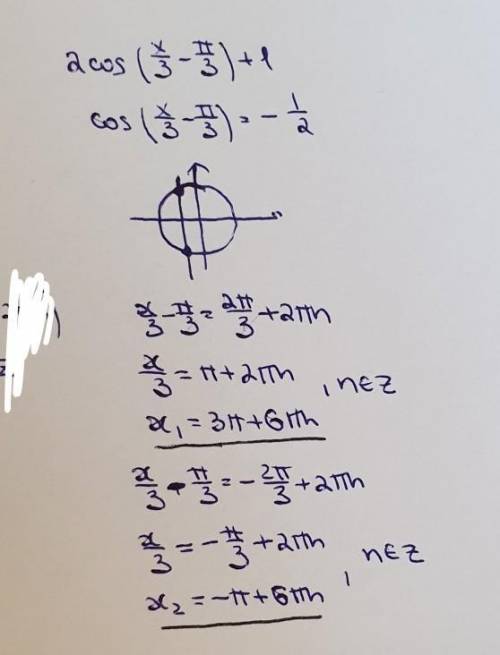 2cos(x/3 - π/3) + 1
cos(x/3 - π/3) = - 1/2
x/3 - π/3 = 2π/3 + 2πn
x/3 = π + 2πn
, n∈Z
x₁ = 3π + 6πn
x/3 - π/3 = - 2π/3 + 2πn
x/3 = - π/3 + 2πn
, n∈Z
x₂ = -π + 6πn